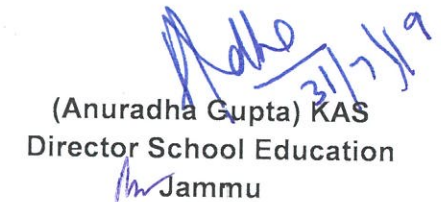 31/7/19
(Anuradha Gupta) KAS
Director School Education
Jammu